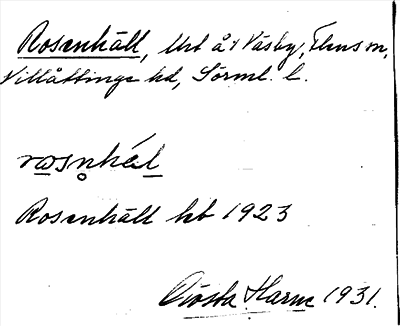 Rosenhäll, Utb å V Väsby, Flens sn,
Villåttinge hd, Sörml. l.
rosnhél
Rosenhäll kb 1923
Gösta Harne 1931.